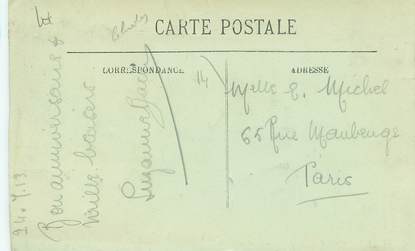 CARTE POSTALE
CORRESPONDANCE
ADRESSE
24.4.13
Bon anniversaire &
mille baisers
Suzanne
14
Melle E. Michel
65 Rue Maubeuge
Paris